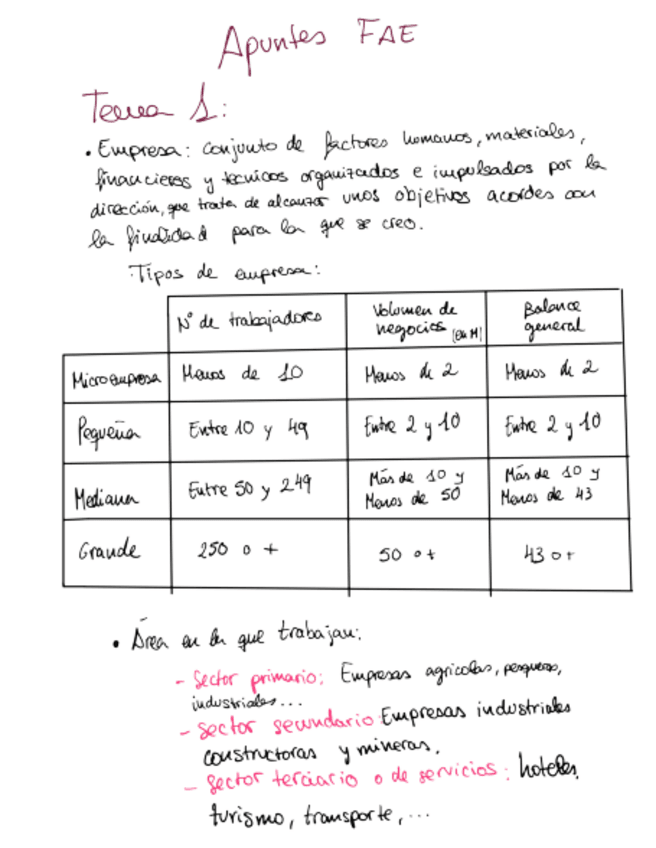 Apuntes FAE
Tema 1:
• Empresa: conjunto de factores humanos, materiales,
financieros y técnicos organizados e impulsados por la
dirección, que trata de alcanzar unos objetivos acordes con
la finalidad para la que se creo.
Tipos de empresa:
Nº de trabajadores Volumen de negocios (en M) Balance general
Microempresa Menos de 10 Menos de 2 Menos de 2
Pequeña Entre 10 y 49 Entre 2 y 10 Entre 2 y 10
Mediana Entre 50 y 249 Más de 10 y Menos de 50 Más de 10 y Menos de 43
Grande 250 o + 50 o + 43 o +
• Área en la que trabajan:
- Sector primario: Empresas agricolas, pesqueras,
industriales...
- Sector secundario: Empresas industriales
constructoras y mineras.
- Sector terciario o de servicios: hoteles,
turismo, transporte, ...